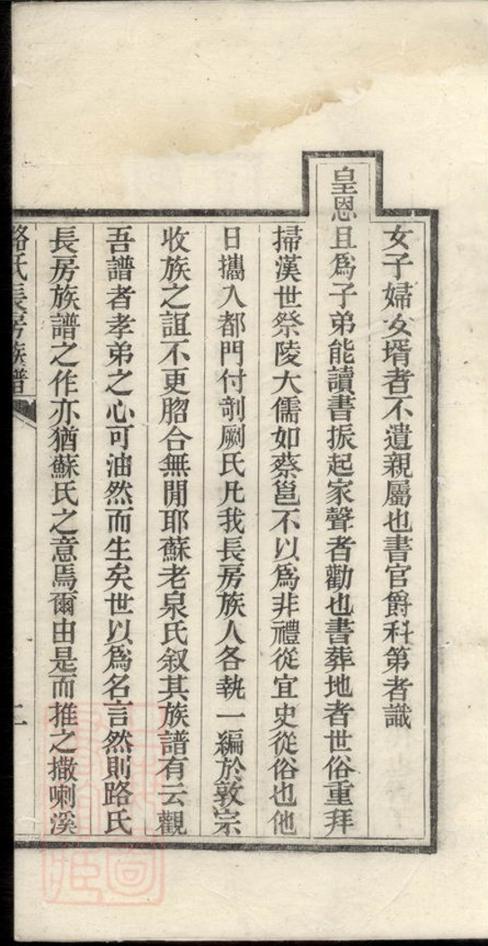 女子婦女壻者不遺親屬也書官爵科第者識
皇恩且爲子弟能讀書振起家聲者勸也書葬地者世俗重拜
掃漢世祭陵大儒如蔡邕不以爲非禮從宜史從俗也他
日攜入都門付剞劂氏凡我長房族人各執一編於敦宗
收族之誼不更脗合無閒耶蘇老泉氏叙其族譜有云觀
吾譜者孝弟之心可油然而生矣世以爲名言然則路氏
長房族譜之作亦猶蘇氏之意焉爾由是而推之撒喇溪
路氏長房族譜
二